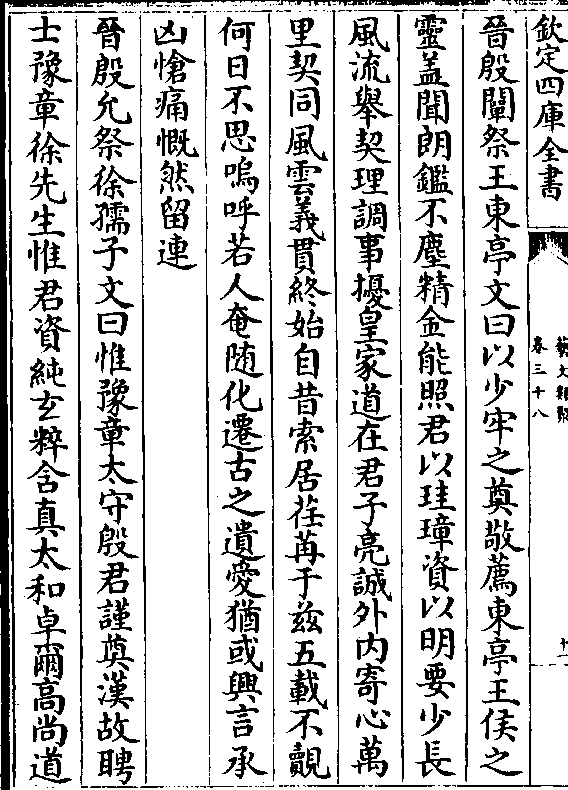 欽定四庫全書
藝文類聚
卷三十八
十一
晉殷闡祭王東亭文曰以少牢之奠敬薦東亭王侯之
靈盖聞朗鑑不塵精金能照君以珪璋資以明要少長
風流舉契理調事擾皇家道在君子亮誠外内寄心萬
里契同風雲義貫終始自昔索居荏苒于兹五載不覿
何日不思嗚呼若人奄随化遷古之遺愛猶或興言承
凶愴痛慨然留連
晉殷允祭徐孺子文曰惟豫章太守殷君謹奠漢故聘
士豫章徐先生惟君資純玄粹含真太和卓爾高尚道